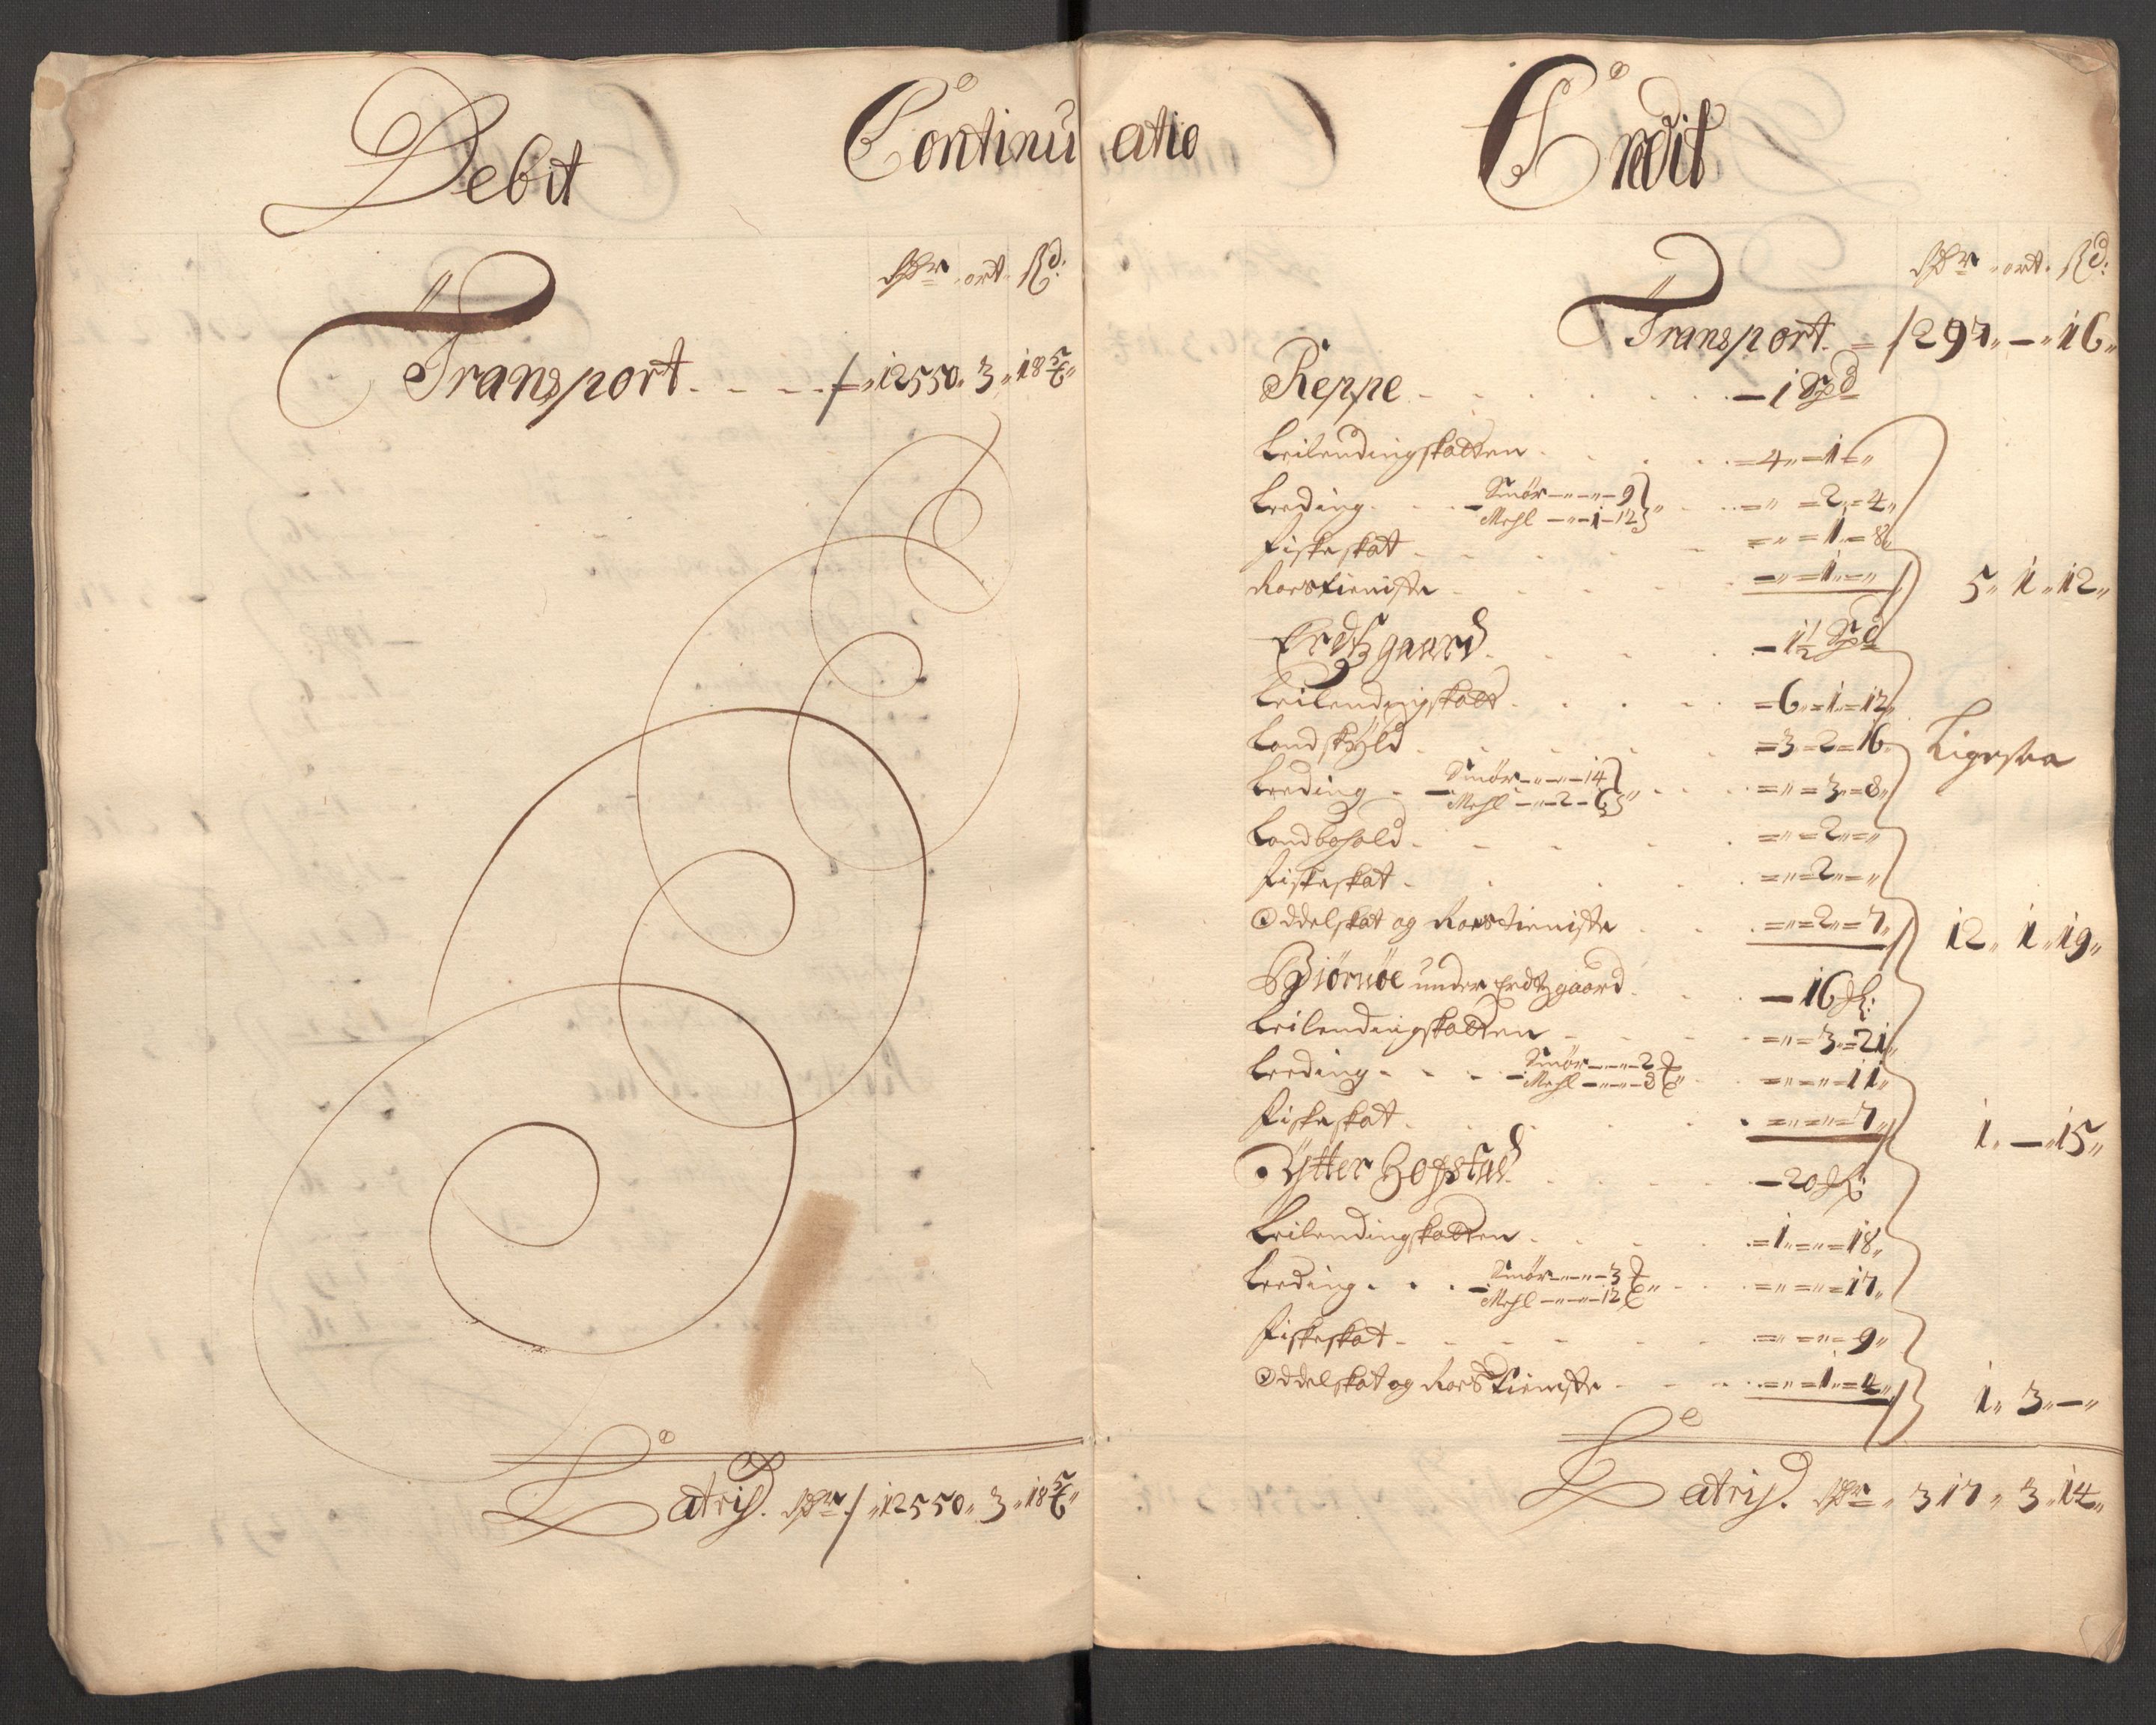 Debit Continuatio Credit
SPDr ort. ſſd:
Transport. - - - 12550. 3. 18 5/6
Latris. SPDr / 12550. 3. 18 5/6
SPDr ort. ſſd:
Transport. 297. — 16
Reppe - - - 1 Spd
Leilendingskatten. - 4. 1. "
Leding. - Smör - - 9
Mehl - 1 - 12 " - " 2. 4
Fiskeskat - " 1. 8
Roestieniste - " 1. " 5. 1. 12
Erdtzgaard. - 1½ Spd
Leilendingskatt. - 6. 1. 12
Landskÿld - 3. 2. 16 Ligesaa
Leding - Smör - - 14
Mehl - 2 - 6 " - " 3. 8
Landbohold. - " 2. "
Fiskeskat. - " 2. "
Oddelskat og Roestieniste - " 2. 7 12. 1. 19
Biörnöe under Erdtzgaard. - 16 ℳ:
Leilendingskatten - " 3. 21
Leding - Smör - - 2
Mehl - - 8 " - " " 11
Fiskeskat. - " " 7 1. — 15
Ÿtter Hogstad. - 20 ℳ:
Leilendingskatten. - 1. " 18
Leding. - Smör - - 3
Mehl - - 12 " - " " 17
Fiskeskat - " " 9
Oddelskat og Roestieniste - " 1. 4 1. 3. —
Latris. SPDr 317. 3. 14